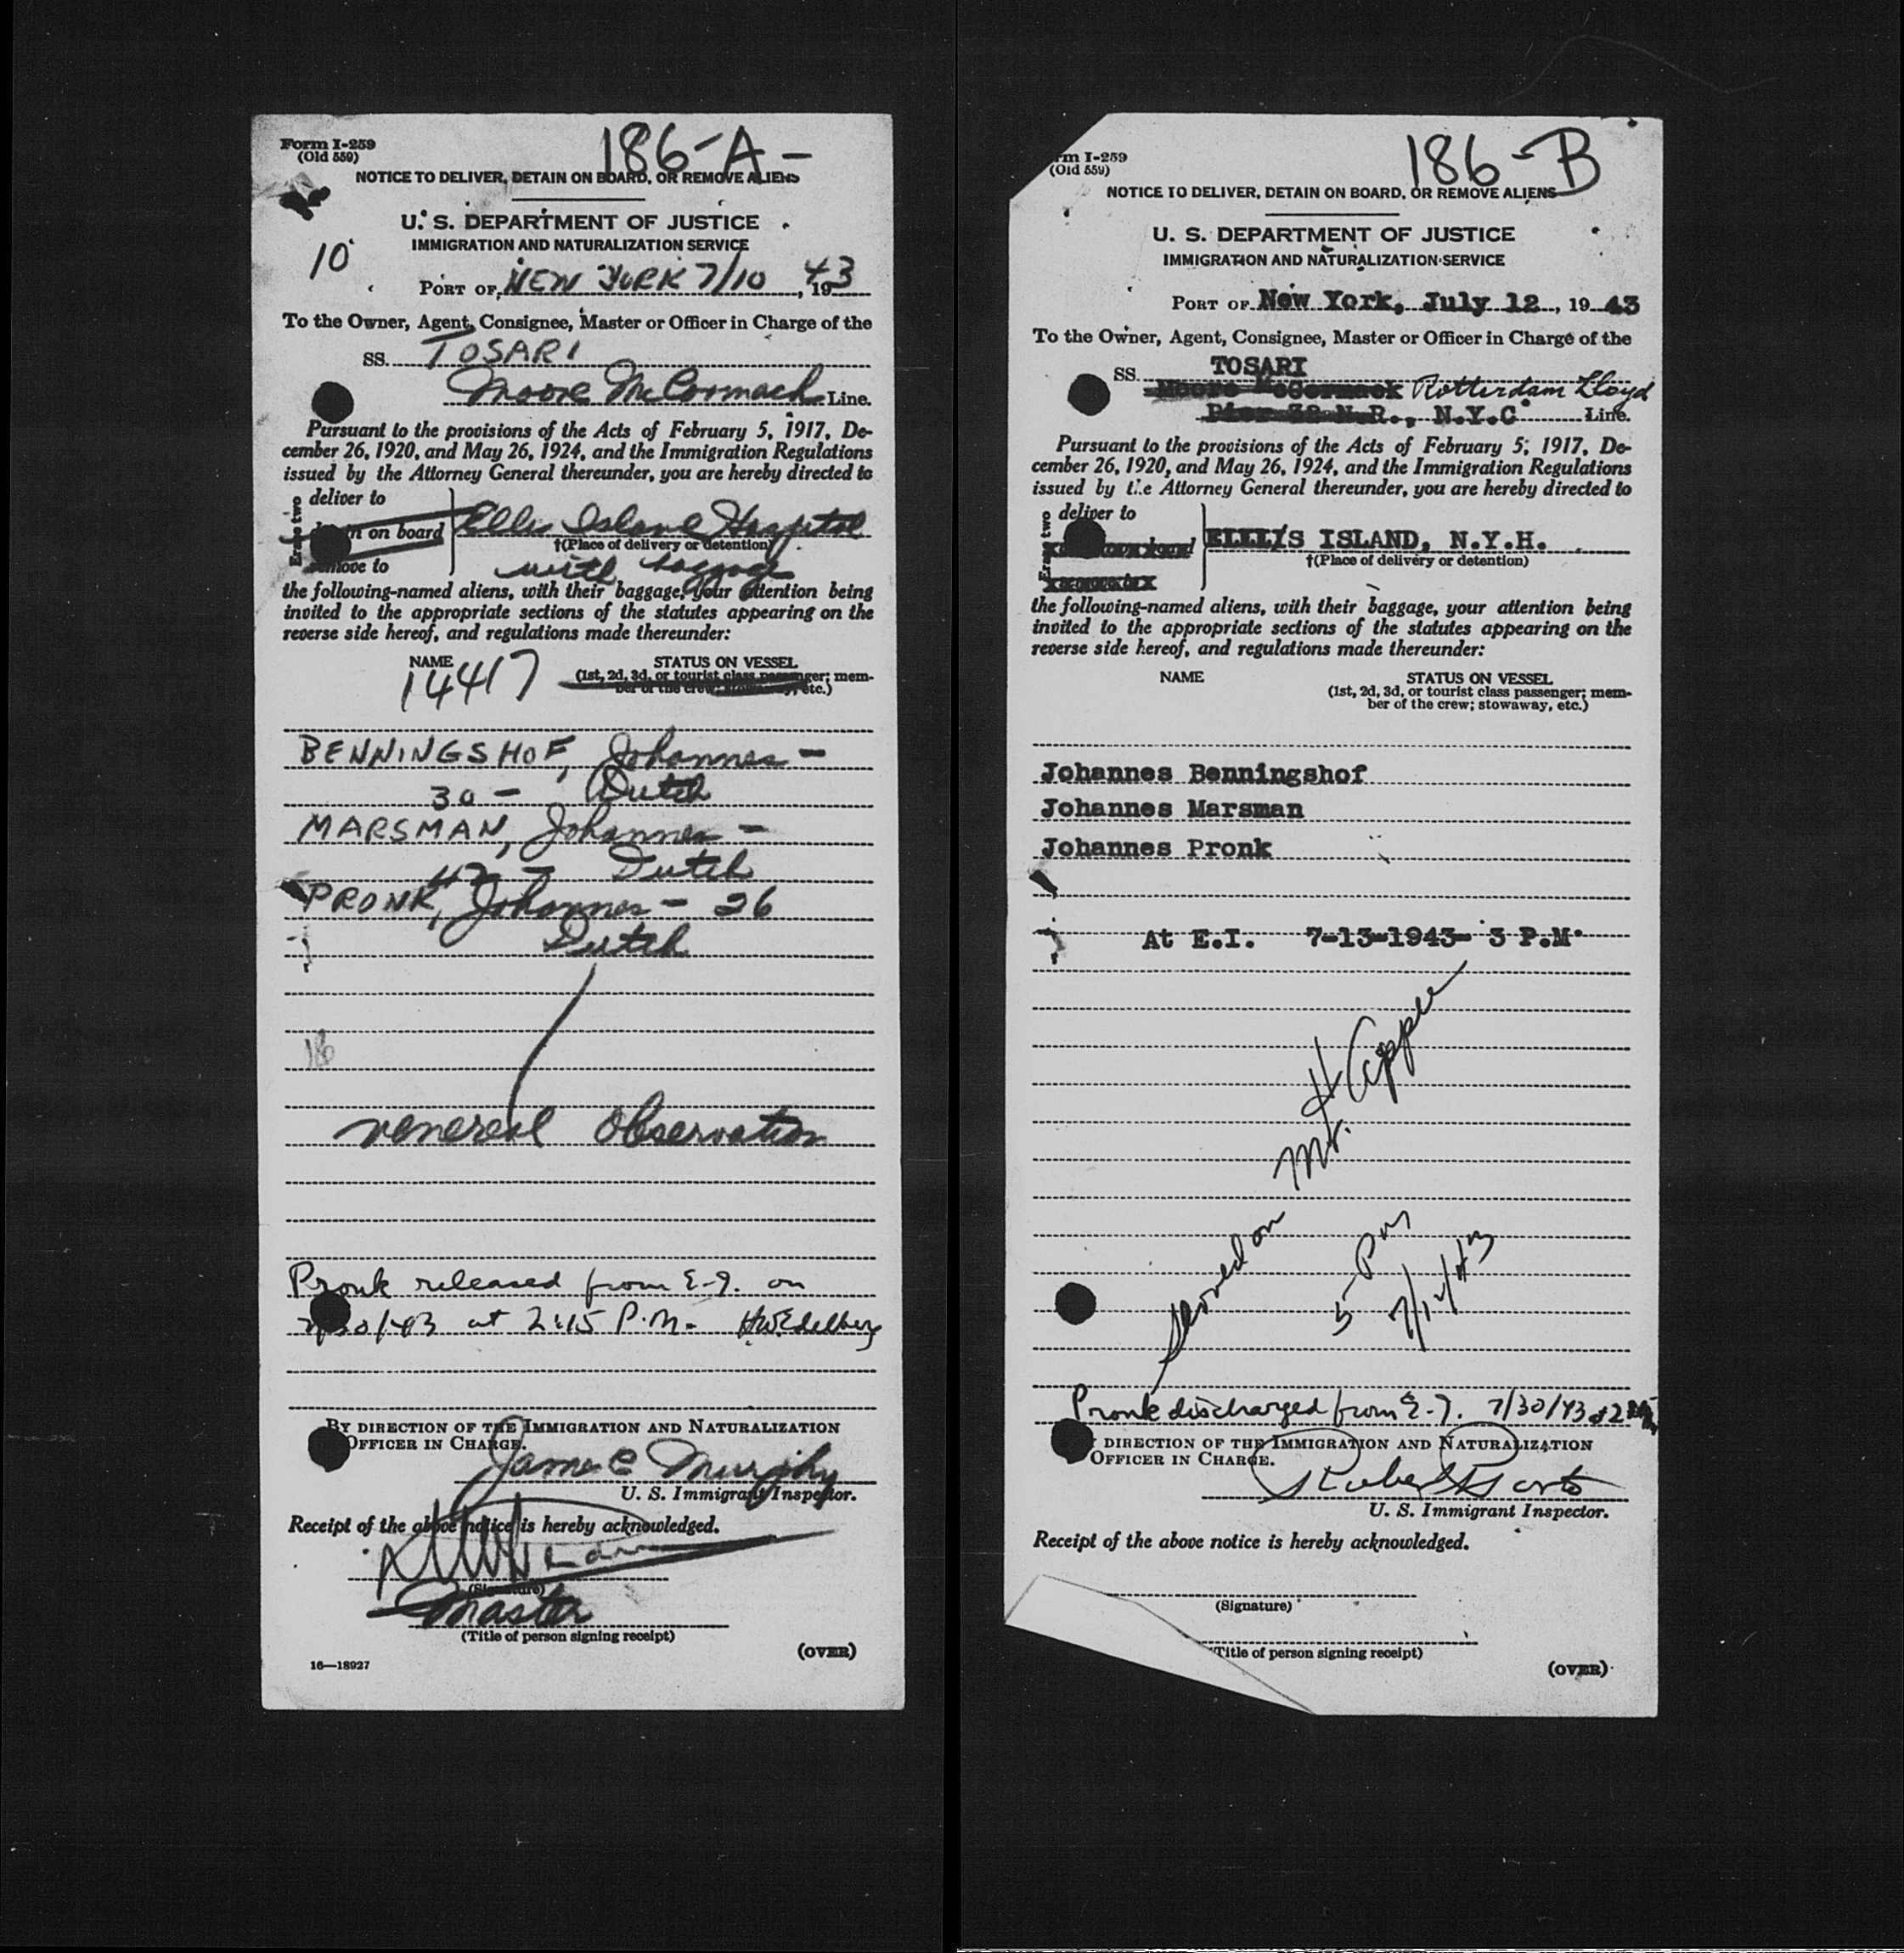 186-A-
Form I-259
(Old 559)
NOTICE TO DELIVER, DETAIN ON BOARD, OR REMOVE ALIENS
U. S. DEPARTMENT OF JUSTICE
IMMIGRATION AND NATURALIZATION SERVICE
10
PORT OF NEW YORK 7/10, 1943
To the Owner, Agent, Consignee, Master or Officer in Charge of the
SS. TOSARI
Moore McCormack Line.
Pursuant to the provisions of the Acts of February 5, 1917, De-
cember 26, 1920, and May 26, 1924, and the Immigration Regulations
issued by the Attorney General thereunder, you are hereby directed to
Erase two
deliver to
on board
Ellis Island Hospital
†(Place of delivery or detention)
remove to
with baggage
the following-named aliens, with their baggage, your attention being
invited to the appropriate sections of the statutes appearing on the
reverse side hereof, and regulations made thereunder:
NAME STATUS ON VESSEL
14417 (1st, 2d, 3d, or tourist class passenger; mem-
ber of the crew; stowaway, etc.)
BENNINGSHOF, Johannes -
30 - Dutch
MARSMAN, Johannes -
42 - Dutch
PRONK, Johannes - 26
Dutch
186
venereal Observation
Pronk released from E.I. on
7/30/43 at 2:15 P.M. H.W.Edelberg
BY DIRECTION OF THE IMMIGRATION AND NATURALIZATION
OFFICER IN CHARGE.
James C Murphy
U. S. Immigrant Inspector.
Receipt of the above notice is hereby acknowledged.
(Signature)
Master
(Title of person signing receipt)
(OVER)
16—18927
186-B
rm I-259
(Old 559)
NOTICE TO DELIVER, DETAIN ON BOARD, OR REMOVE ALIENS
U. S. DEPARTMENT OF JUSTICE
IMMIGRATION AND NATURALIZATION SERVICE
PORT OF New York, July 12, 1943
To the Owner, Agent, Consignee, Master or Officer in Charge of the
SS. TOSARI
Moore McCormack Rotterdam Lloyd
Pier 32 N.R., N.Y.C Line.
Pursuant to the provisions of the Acts of February 5, 1917, De-
cember 26, 1920, and May 26, 1924, and the Immigration Regulations
issued by the Attorney General thereunder, you are hereby directed to
Erase two
deliver to
ELLIS ISLAND, N.Y.H.
†(Place of delivery or detention)
the following-named aliens, with their baggage, your attention being
invited to the appropriate sections of the statutes appearing on the
reverse side hereof, and regulations made thereunder:
NAME STATUS ON VESSEL
(1st, 2d, 3d, or tourist class passenger; mem-
ber of the crew; stowaway, etc.)
Johannes Benningshof
Johannes Marsman
Johannes Pronk
At E.I. 7-13-1943- 3 P.M.
Served on Mr.
5 PM
7/12/43
Pronk discharged from E.I. 7/30/43
DIRECTION OF THE IMMIGRATION AND NATURALIZATION
OFFICER IN CHARGE.
U. S. Immigrant Inspector.
Receipt of the above notice is hereby acknowledged.
(Signature)
(Title of person signing receipt)
(OVER)